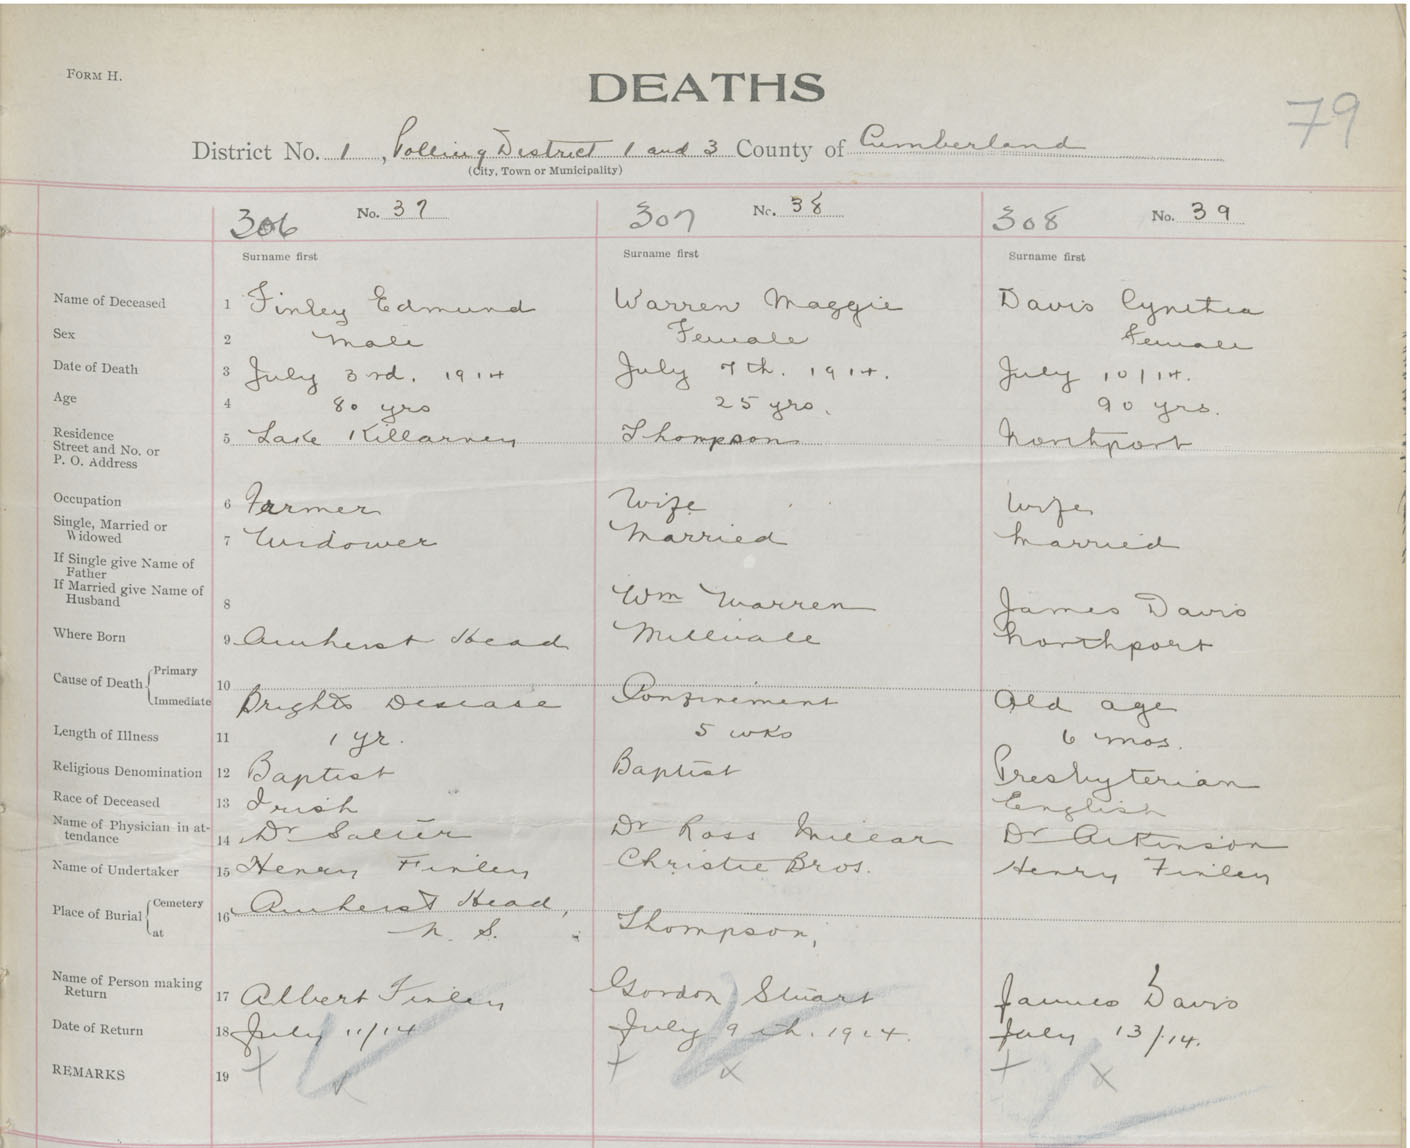 FORM H.
DEATHS
79
District No. 1, Polling District 1 and 3 County of Cumberland
(City, Town or Municipality)
306 No. 37 307 No. 38 308 No. 39
Surname first Surname first Surname first
Name of Deceased 1 Finley Edmund Warren Maggie Davis Cynthia
Sex 2 Male Female Female
Date of Death 3 July 3rd. 1914 July 7th. 1914. July 10/14.
Age 4 80 yrs 25 yrs. 90 yrs.
Residence
Street and No. or
P. O. Address 5 Lake Killarney Thompson Northport
Occupation 6 Farmer Wife Wife
Single, Married or
Widowed 7 Widower Married Married
If Single give Name of
Father
If Married give Name of
Husband 8 Wm Warren James Davis
Where Born 9 Amherst Head Millvale Northport
Cause of Death Primary 10
Immediate Brights Disease Confinement Old age
Length of Illness 11 1 yr. 5 wks 6 mos.
Religious Denomination 12 Baptist Baptist Presbyterian
Race of Deceased 13 Irish English
Name of Physician in at-
tendance 14 Dr Salter Dr Ross Millar Dr Atkinson
Name of Undertaker 15 Henry Finley Christie Bros. Henry Finley
Place of Burial Cemetery 16 Amherst Head,
at N. S. Thompson,
Name of Person making
Return 17 Albert Finley Gordon Stuart James Davis
Date of Return 18 July 11/14 July 9th. 1914. July 13/14.
REMARKS 19 + x + x + x